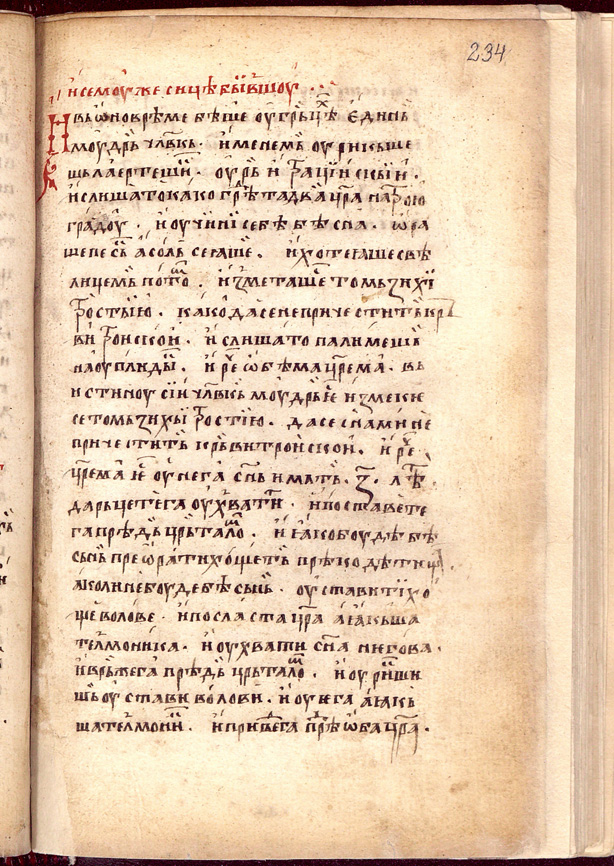 234
и семоу же сицѣ бꙑ́вшоу
въ ѡно врѣме бѣше оу грьцѣⷯ е҆динь
моудрь чл҃вкь · и именемь оурикьше
шь лаертеши · оурь и тройскїи ·
и слиша то како грѣта два цр҃а на трою
градоу · и оучини себѣ бѣсна · ѡра
ше песⷦ҇ꙑ а соль сеꙗше · и хотеꙗше свѣ
лицемь потоⷨ · и изметаше томьзи хї
тростїю · како да се не причестить кръ
ви тройской · и слиша то палимешь
на оуплиди · и рⷱ҇е ѡбѣма цр҃ема · вь
истиноу сїи чл҃вкь моудрь е҆ и змекю
се томьзи хꙑтростїю · да се с нами не
причестить крьви тройской · и рⷱ҇е
цр҃ема е҆ оу нега сн҃ь имать · з҃ · лѣⷮ
дарьцете га оухватⷩи · и поставете
га прѣдь црьталоⷨ · и ꙗко боуде бѣ
сьнь преѡратихощеть прѣко дѣтища ·
а коли не боуде бѣсьнь · оуставити хо
ще волове · и посла ста цр҃а аꙗкьша
телмоника · и оухвати сн҃а нѥгова ·
и врьже га прѣдь црьталоⷨ · и оуриши
шь оустави волови · и оу нѥга аꙗкь
ша телмониⷩ · и приведе га прⷣѣ ѡба цр҃а ·